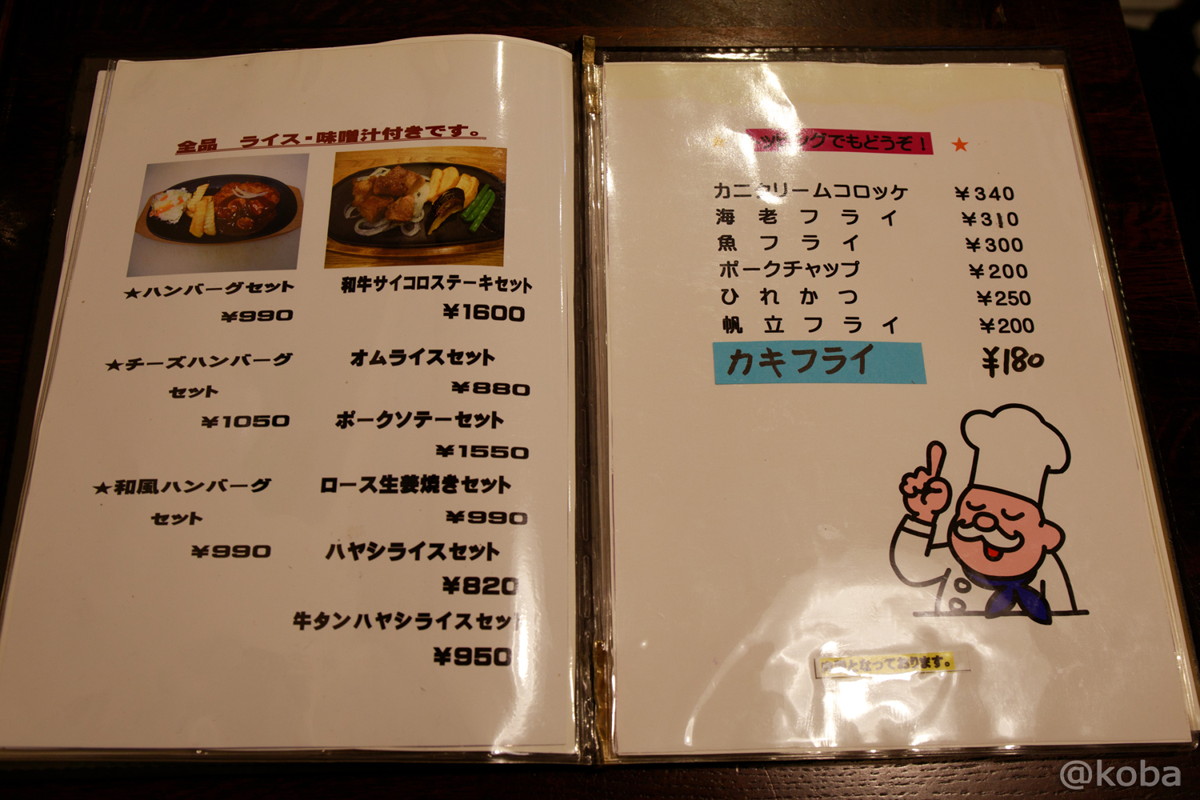 全品 ライス・味噌汁付きです。
★ハンバーグセット
¥990
★チーズハンバーグ
セット
¥1050
★和風ハンバーグ
セット
¥990
和牛サイコロステーキセット
¥1600
オムライスセット
¥880
ポークソテーセット
¥1550
ロース生姜焼きセット
¥990
ハヤシライスセット
¥820
牛タンハヤシライスセット
¥950
★ トッピングでもどうぞ! ★
カニクリームコロッケ ¥340
海老フライ ¥310
魚フライ ¥300
ポークチャップ ¥200
ひれかつ ¥250
帆立フライ ¥200
カキフライ ¥180
となっております。
@koba